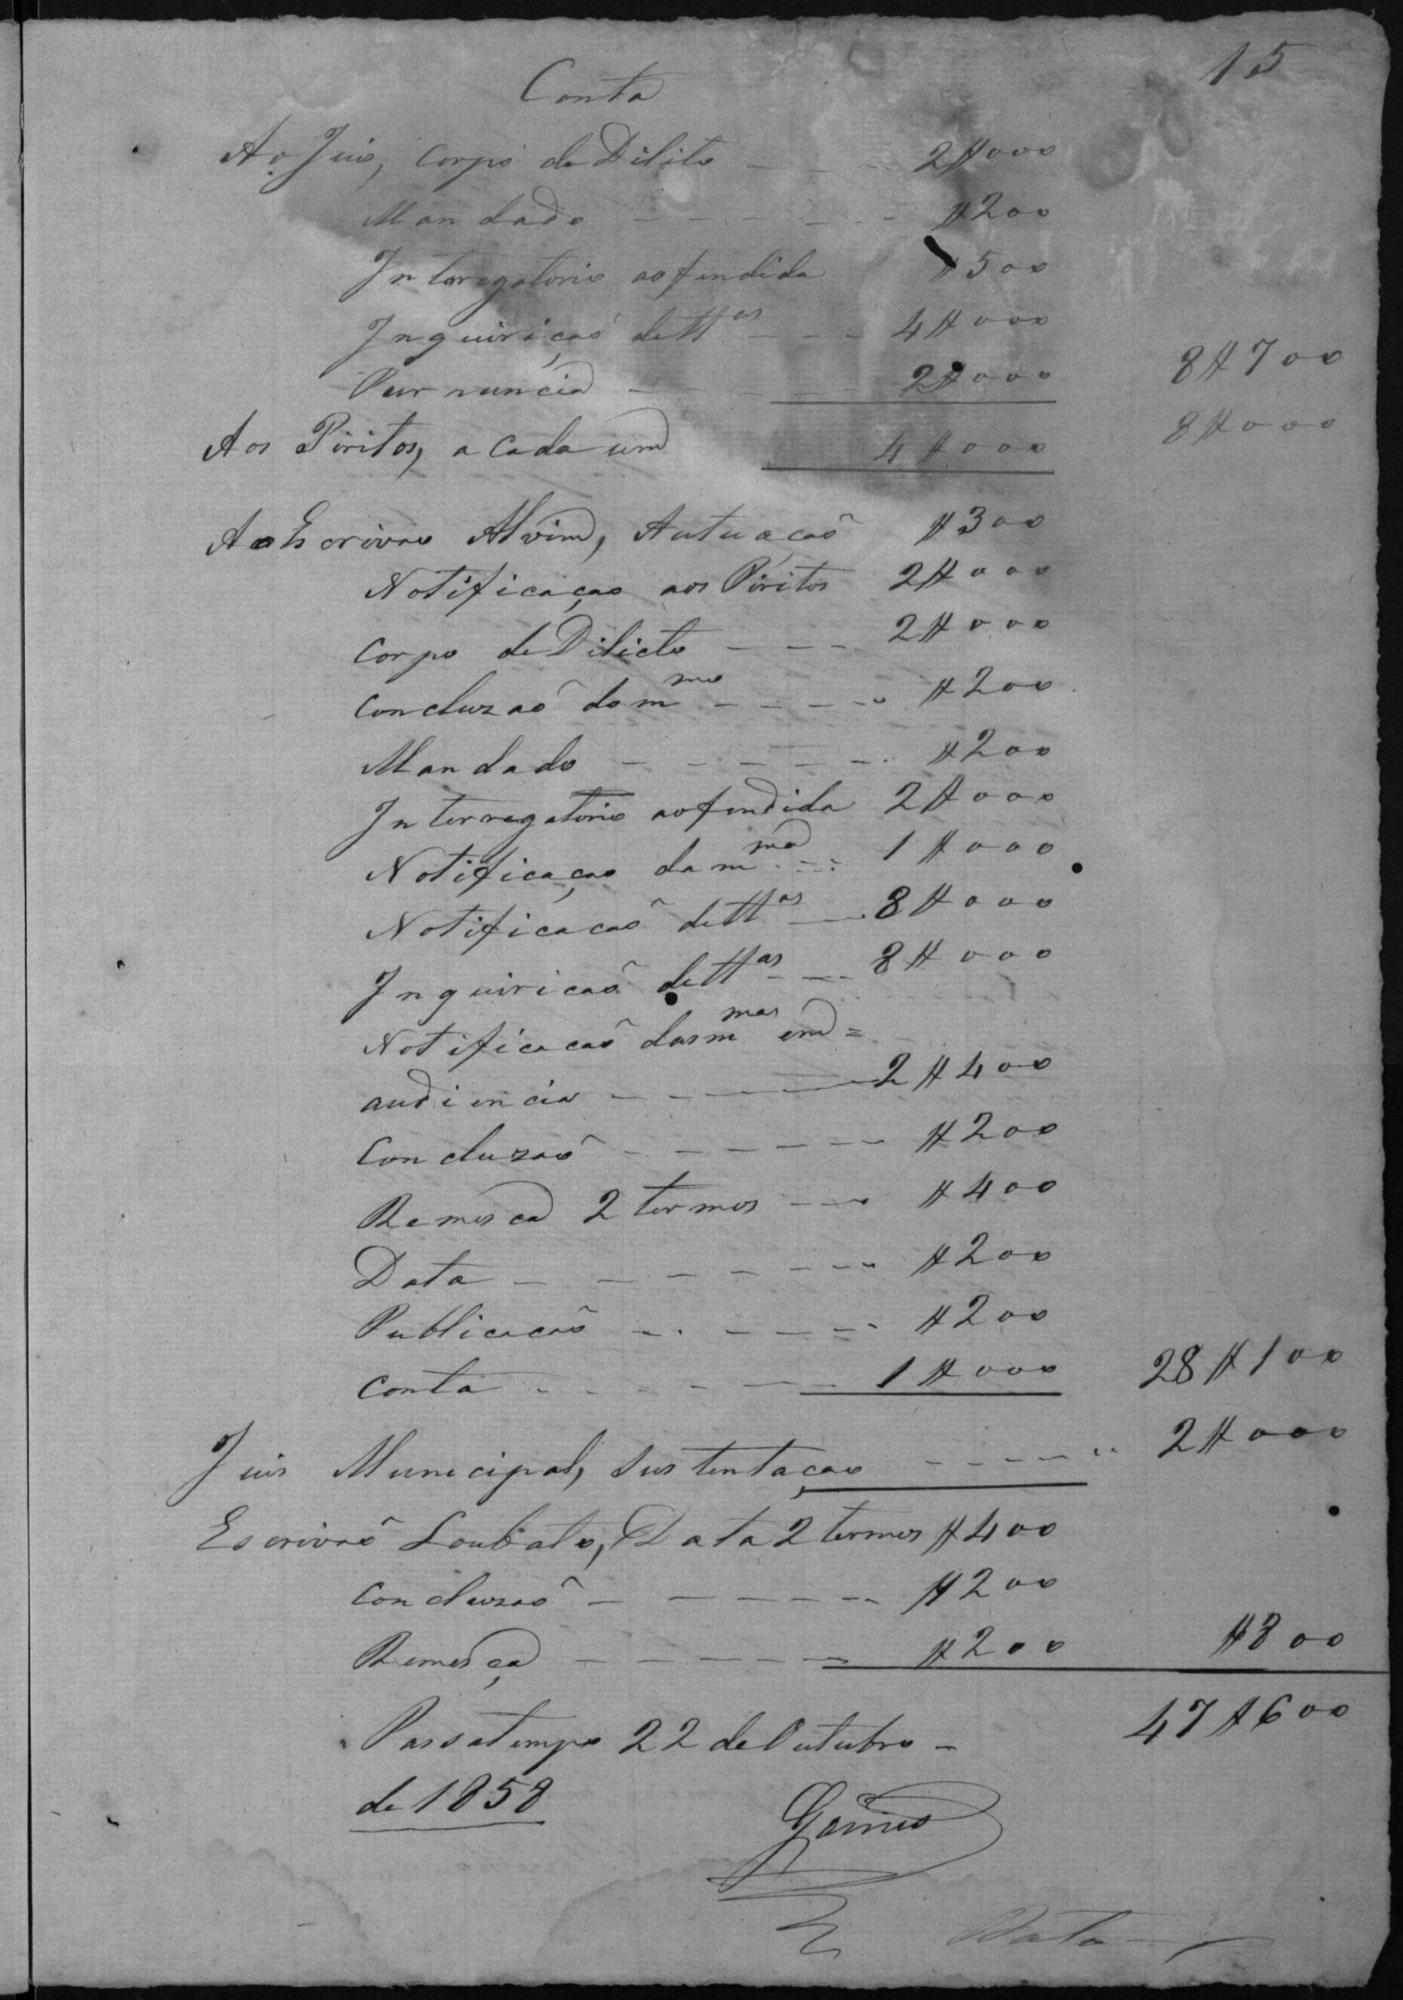 15
Conta
Ao Juis, Corpo de Dilito - - - 2$000
Mandado - - - - - - $200
Interegatorio aofendida $500
Inquiriçaõ de ttas - - - 4$000
Pur nuncia - - - - 2$000 8$700
Aos Piritos, a cada um 4$000 8$000
Ao Escrivao Alvim, Autuaçaõ $300
Notificaçao aos Piritos 2$000
Corpo de Dilicto - - - 2$000
Concluzaõ do mmo - - - - - $200
Mandado - - - - - - $200
Interregatorio aofendida 2$000
Notificaçao da mma - - - 1$000
Notificacaõ de ttas - - 8$000
Inquiricaõ de ttas - - - 8$000
Notificacaõ das mmas em =
audiencia - - - - 2$400
Concluzaõ - - - - - - $200
Remesca 2 termos - - - $400
Data - - - - - - - - $200
Publicacaõ - - - - - - $200
Conta - - - - - - 1$000 28$100
Juis Municipal, sustentaçao - - - - - 2$000
Escrivaõ Loubato, Data 2 termos $400
Concluzaõ - - - - - - $200
Remesça - - - - - - $200 $800
47$600
Passatempo 22 de Outubro -
de 1858
Gomes
Data